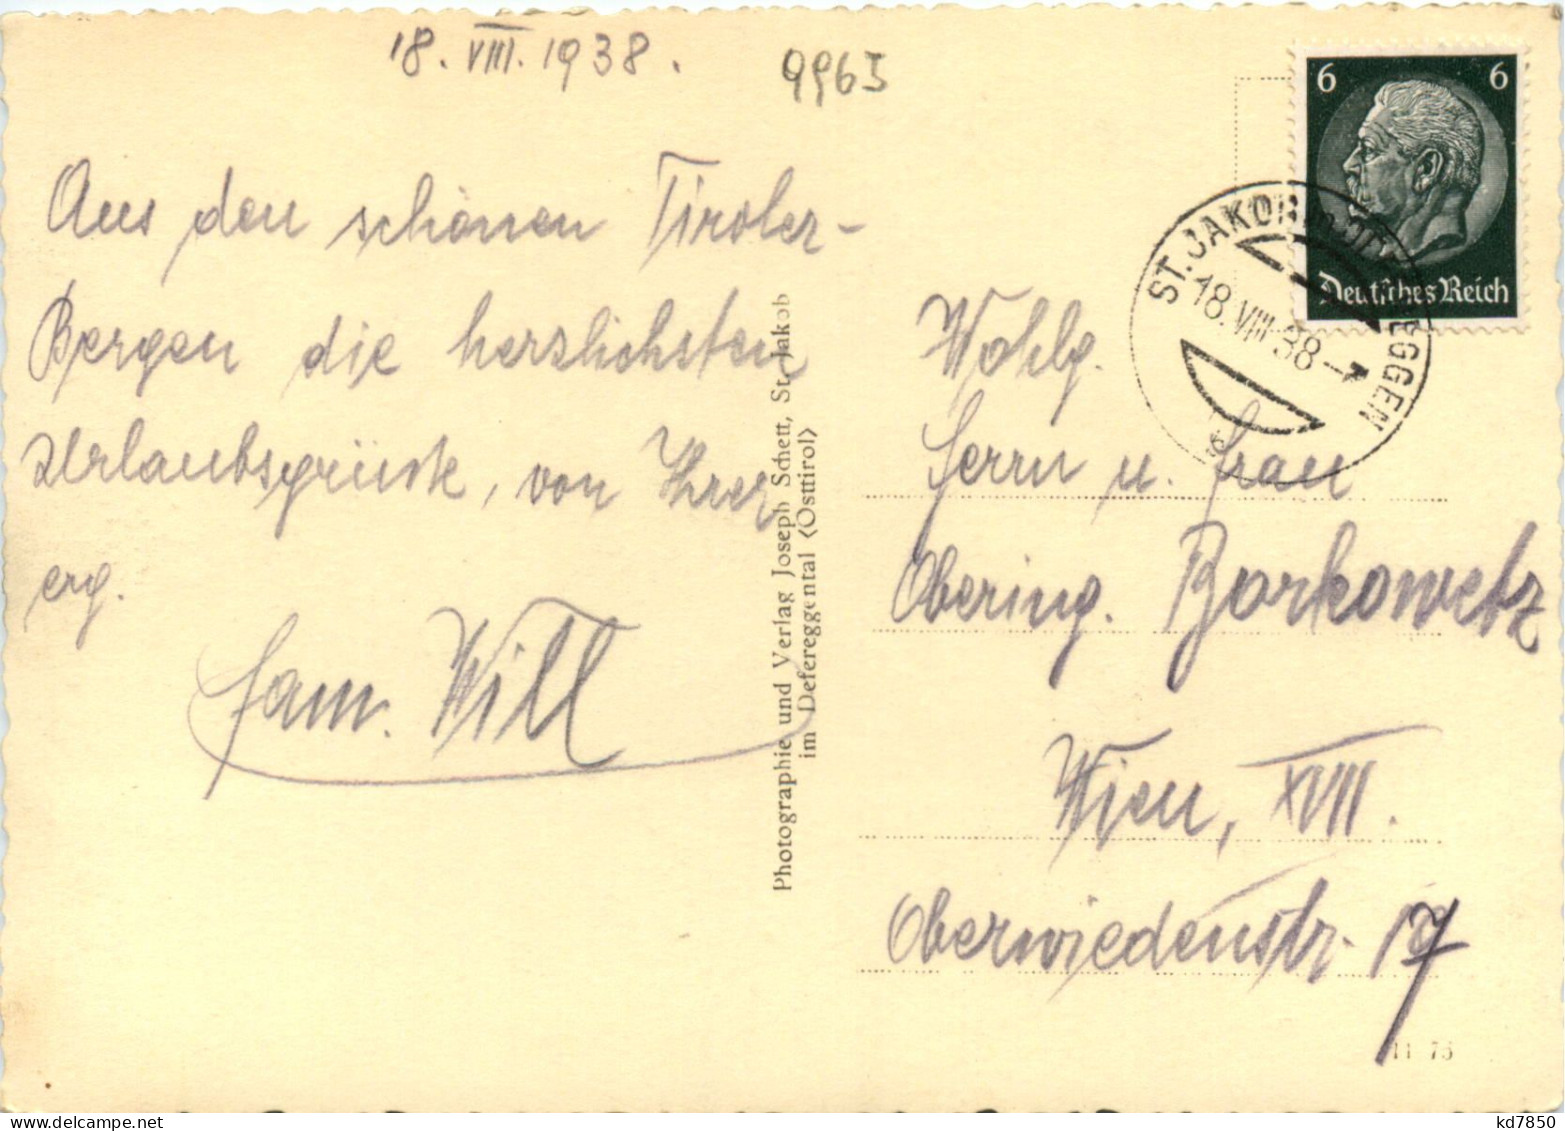 18. VIII. 1938.
9965
Aus den schönen Tiroler-
Bergen die herzlichsten
Urlaubsgrüsse, von Ihrer
erg.
Fam. Will
Photographie und Verlag Joseph Schett, St. Jakob
im Defereggental (Osttirol)
6 6
Deutsches Reich
ST. JAKOB
EGGEN
18.VIII.38
Wohlg.
Herrn u. Frau
Obering. Borkowetz
Wien, XVII.
Oberwiedenstr. 17
11 73
kd7850